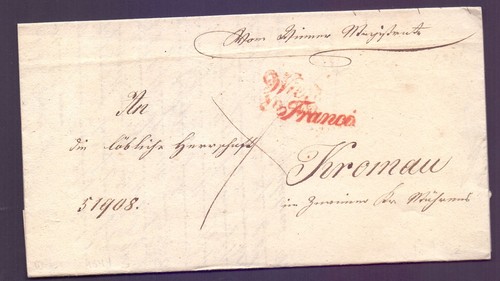 Vom Wiener Magistrate
Wien
Franco
An
die löbliche Herrschaft
Kromau
im Znaimer Kr. Mährens
51908.